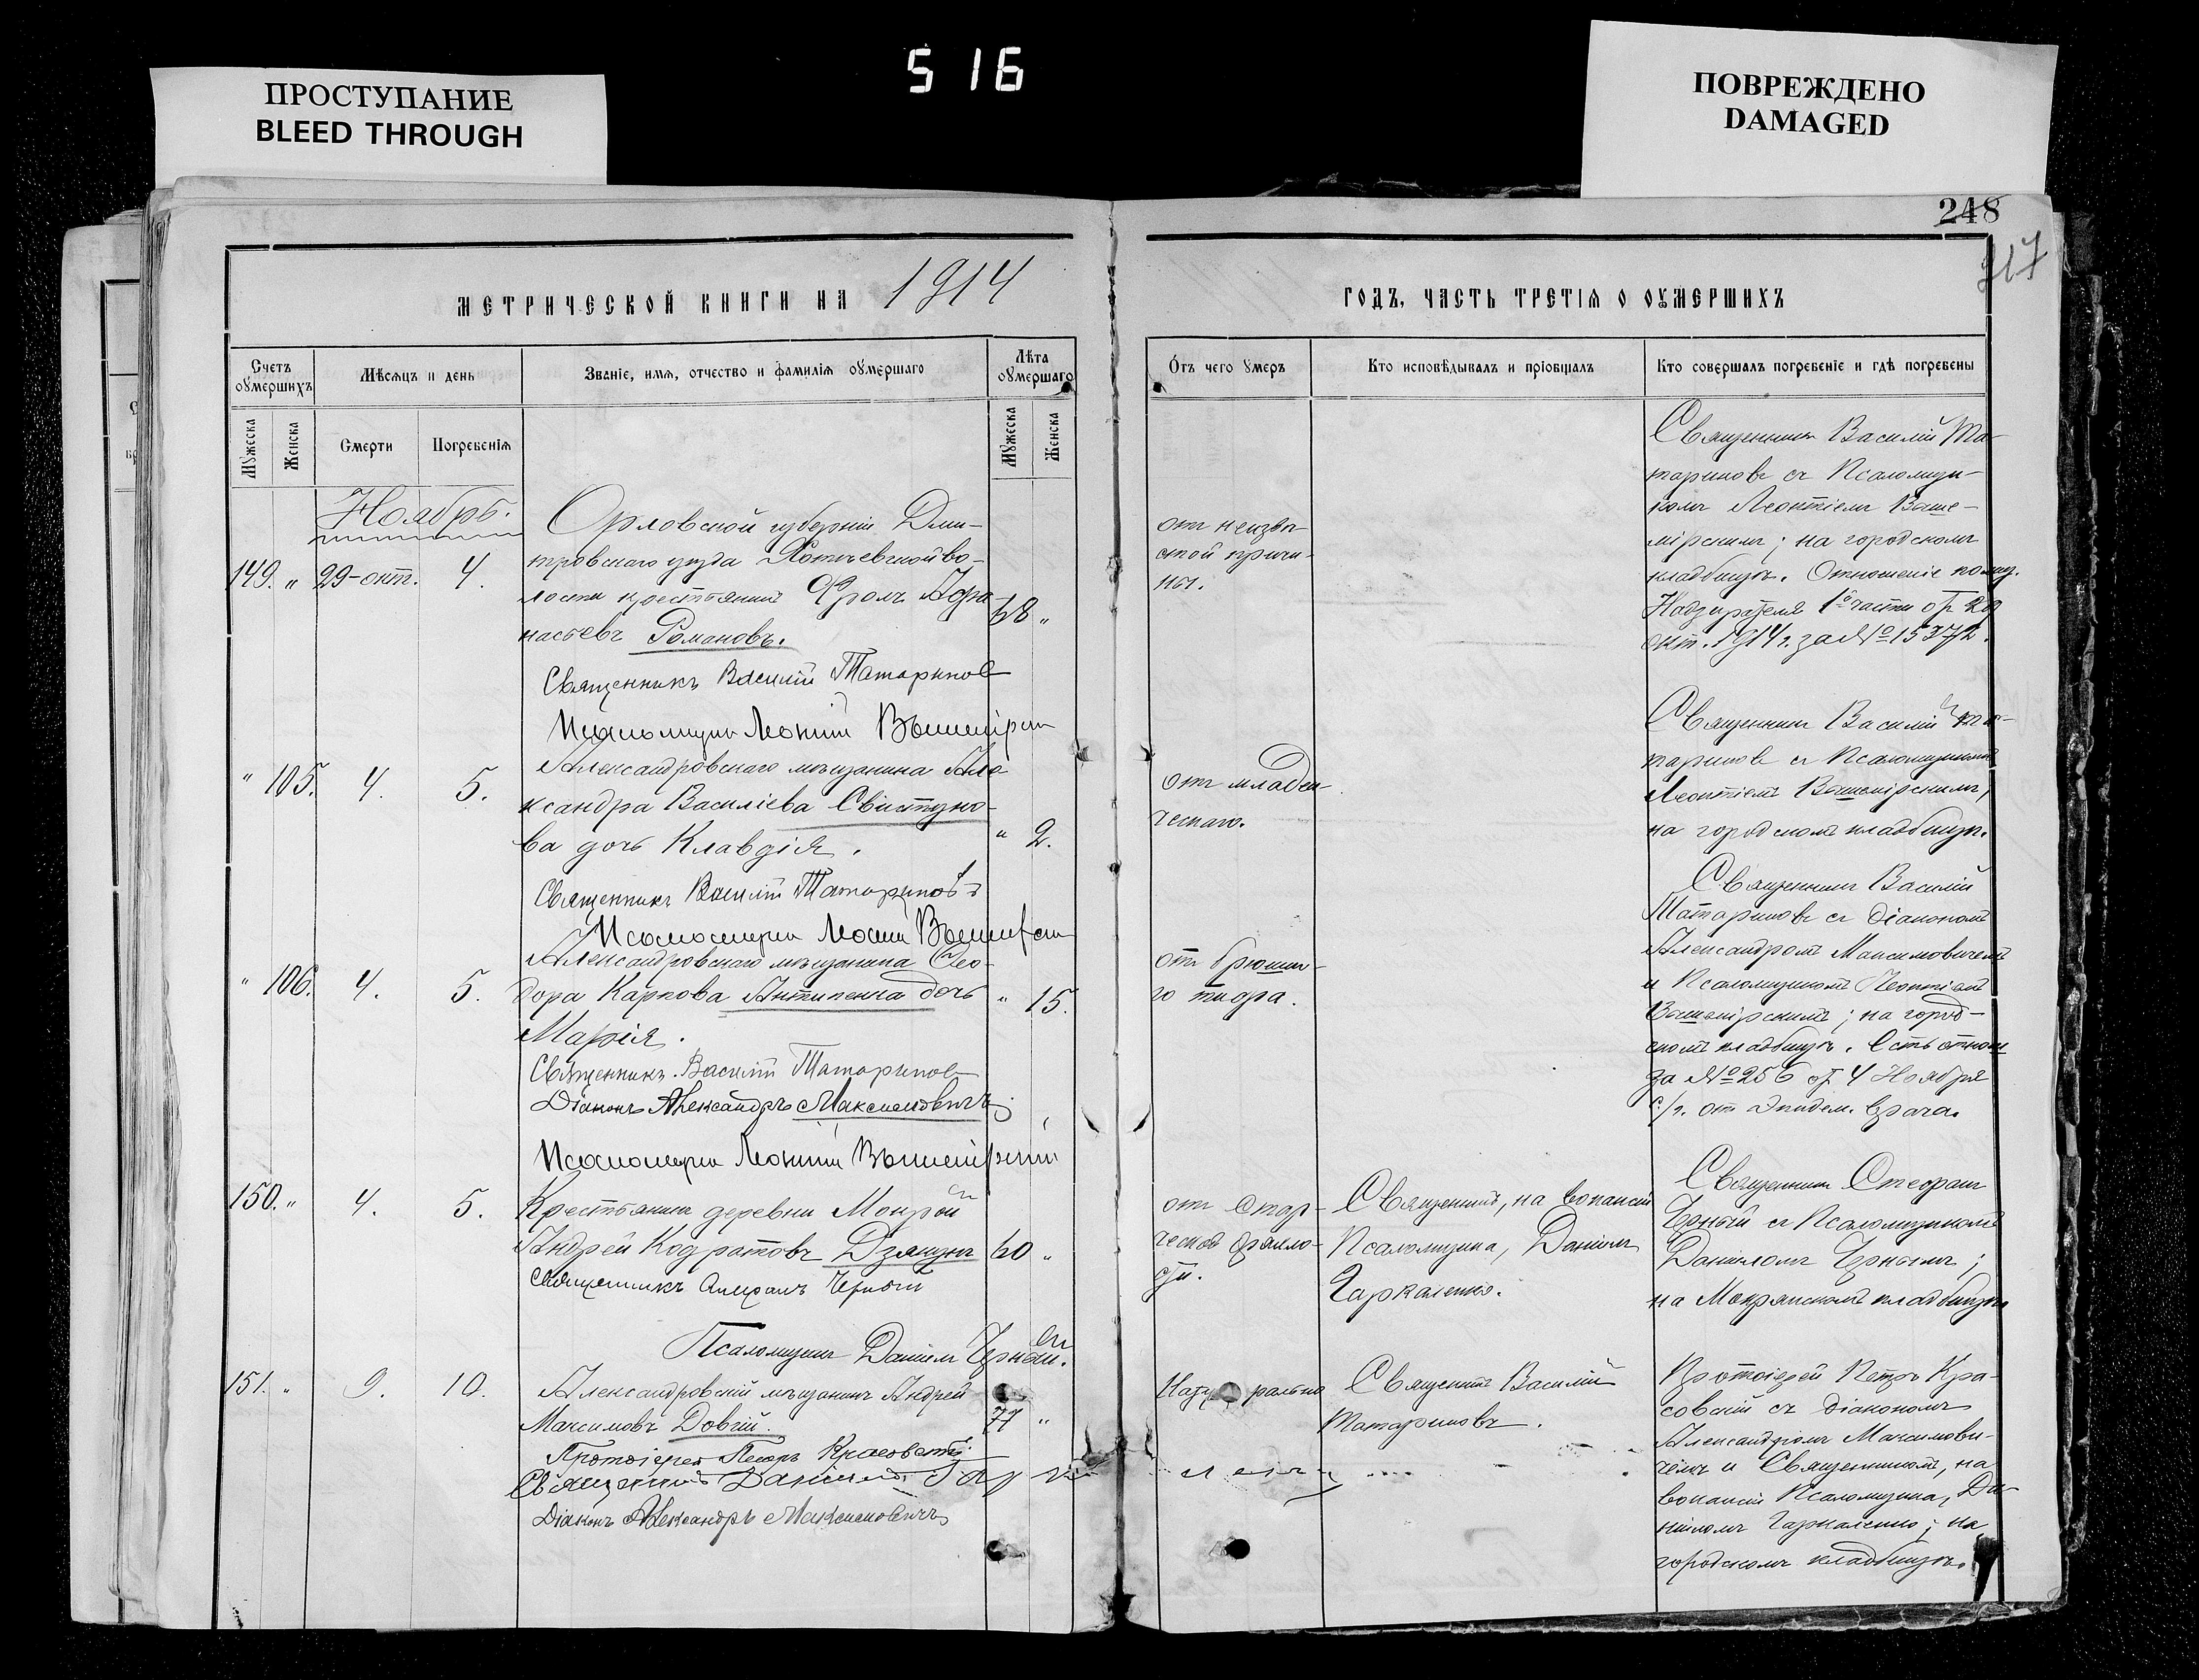 516
ПРОСТУПАНИЕ
BLEED THROUGH
ПОВРЕЖДЕНО
DAMAGED
248
217
МЕТРИЧЕСКОЙ КНИГИ НА 1914
ГОДЪ, ЧАСТЬ ТРЕТІЯ О ОУМЕРШИХЪ
Счетъ оумершихъ
Мѣсяцъ и день
Званіе, имя, отчество и фамилія оумершаго
Лѣта оумершаго
Мужеска
Женска
Смерти
Погребенія
Мужеска
Женска
Отъ чего умеръ
Кто исповѣдывалъ и пріобщалъ
Кто совершалъ погребеніе и гдѣ погребены
Ноябрь.
149. " 29-окт. 4.
Орловской губерніи Дми-
тровскаго уѣзда во-
лости крестьянинъ Фролъ Афа-
насьевъ Романовъ.
68 "
Священникъ Василій Татариновъ
Псаломщикъ
отъ неизвѣ-
стной причи-
ны.
Священникъ Василій Та-
тариновъ съ Псаломщи-
комъ Леонтіемъ Выше-
мірскимъ; на городскомъ
кладбищѣ. Отношеніе полиц.
Надзирателя 1й части от 29
окт. 1914 г. за № 15372.
" 105. 4. 5.
Александровскаго мѣщанина Але-
ксандра Василіева Свистуно-
ва дочь Клавдія.
" 2.
Священникъ Василій Татариновъ
Псаломщикъ
отъ младен-
ческаго.
Священникъ Василій Та-
тариновъ съ Псаломщикомъ
Леонтіемъ Вышемірскимъ;
на городскомъ кладбищѣ.
" 106. 4. 5.
Александровскаго мѣщанина Ѳео-
дора Карпова Антипенка дочь
Марія.
" 15.
Священникъ Василій Татариновъ
Діаконъ Александръ Максимовичъ
Псаломщикъ
отъ брюшн-
го тифа.
Священникъ Василій
Татариновъ съ діакономъ
Александромъ Максимовичемъ
и Псаломщикомъ Леонтіемъ
Вышемірскимъ; на город-
скомъ кладбищѣ. Есть отнош
за № 256 от 4 Ноября
с/г. от эпидем. врача.
150. " 4. 5.
Крестьянинъ деревни Мокрой
Андрей Кодратовъ Дзякунъ
60 "
Священникъ Стефанъ Черный
Псаломщикъ Даніилъ Черный.
отъ стар-
ческой дряхло-
сти.
Священникъ, на вакансіи
Псаломщика, Даніилъ
Гаркаленко.
Священникъ Стефанъ
Черный съ Псаломщикомъ
Даніиломъ Чернымъ;
на Мокрянскомъ кладбищѣ.
151. " 9. 10.
Александровскій мѣщанинъ Андрей
Максимовъ Довгій.
77 "
Протоіерей Петръ Красовскій
Священникъ Даніилъ
Діаконъ Александръ Максимовичъ
Натурально
Священникъ Василій
Татариновъ.
Протоіерей Петръ Кра-
совскій съ діакономъ
Александромъ Максимови-
чемъ и Священникомъ, на
вакансіи Псаломщика, Да-
ніиломъ Гаркаленко; на
городскомъ кладбищѣ.